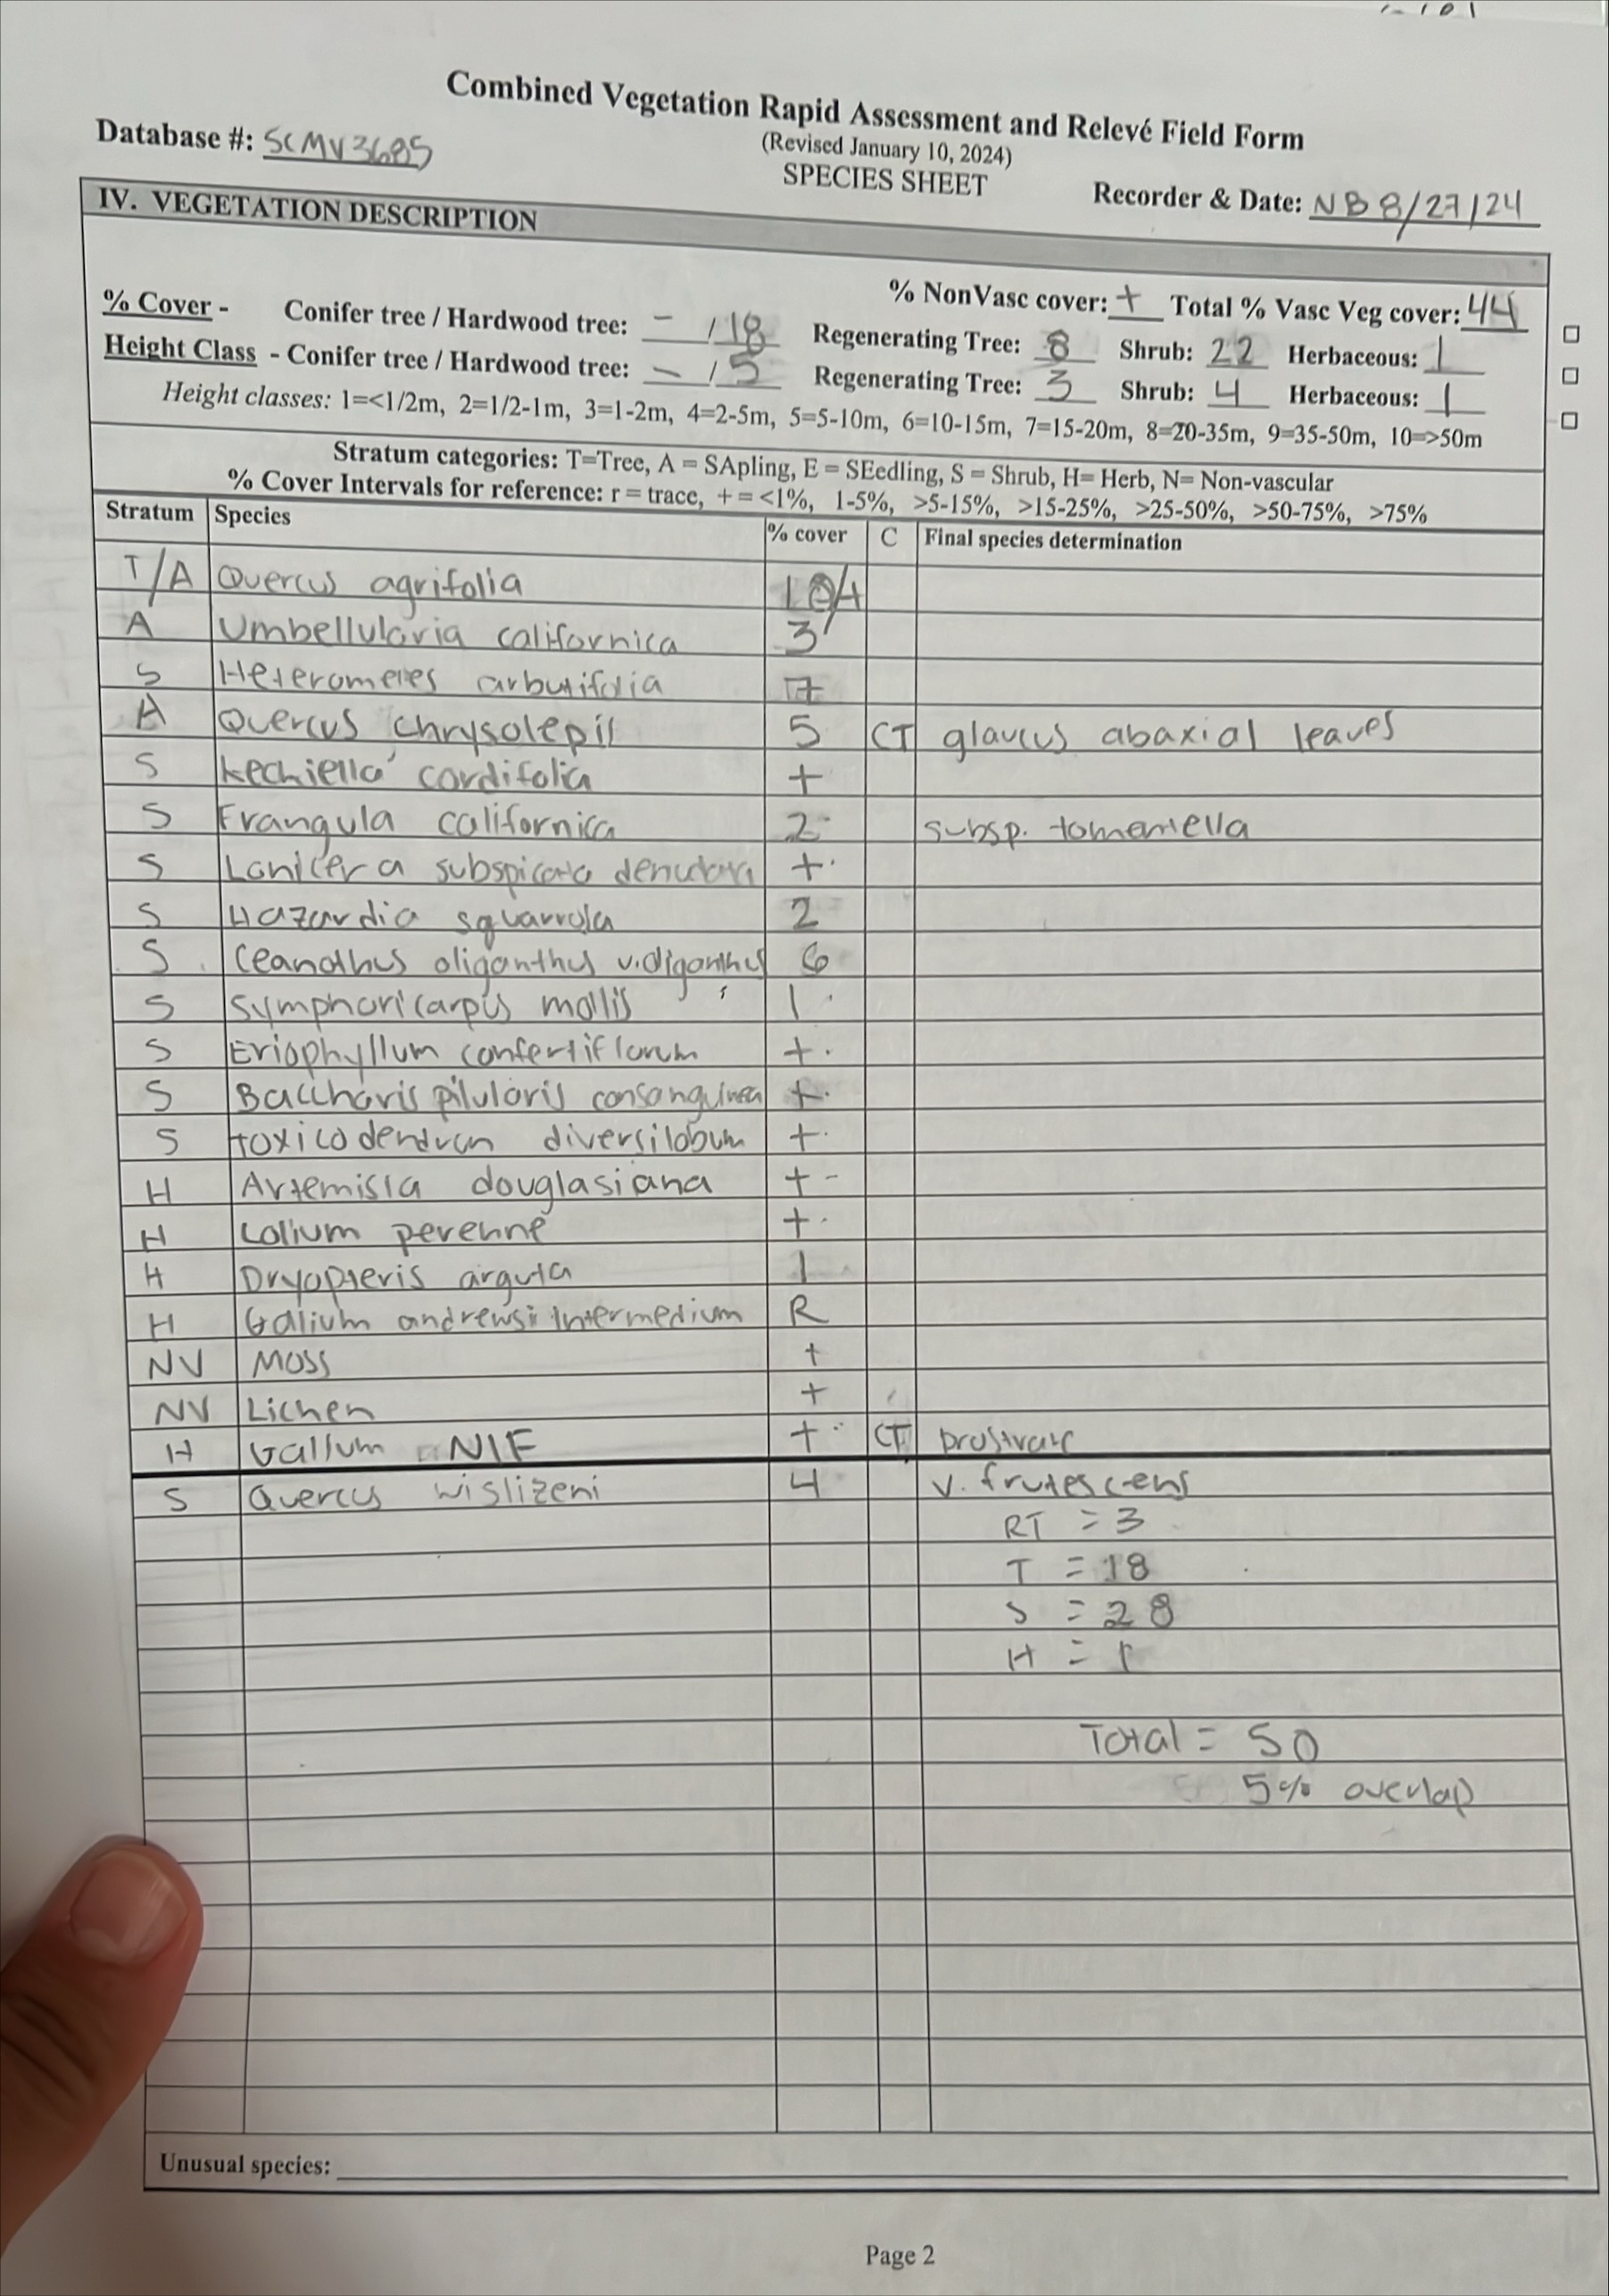 Combined Vegetation Rapid Assessment and Relevé Field Form
(Revised January 10, 2024)
Database #: SCMV3685
SPECIES SHEET
Recorder & Date: NB 8/27/24
IV. VEGETATION DESCRIPTION
% NonVasc cover: + Total % Vasc Veg cover: 44
% Cover - Conifer tree / Hardwood tree: - / 18 Regenerating Tree: 8 Shrub: 22 Herbaceous: 1
Height Class - Conifer tree / Hardwood tree: - / 5 Regenerating Tree: 3 Shrub: 4 Herbaceous: 1
Height classes: 1=<1/2m, 2=1/2-1m, 3=1-2m, 4=2-5m, 5=5-10m, 6=10-15m, 7=15-20m, 8=20-35m, 9=35-50m, 10=>50m
Stratum categories: T=Tree, A = SApling, E = SEedling, S = Shrub, H= Herb, N= Non-vascular
% Cover Intervals for reference: r = trace, + = <1%, 1-5%, >5-15%, >15-25%, >25-50%, >50-75%, >75%
Stratum Species % cover C Final species determination
T/A Quercus agrifolia
A Umbellularia californica 3
S Heteromeles arbutifolia 7
A Quercus chrysolepis 5 CT glaucus abaxial leaves
S keckiella cordifolia +
S Frangula californica 2 subsp. tomentella
S Lonicera subspicata denudata +
S Hazardia squarrosa 2
S Ceanothus oliganthus v. oliganthus 6
S Symphoricarpus mollis 1
S Eriophyllum confertiflorum +
S Baccharis pilularis consanguinea +
S toxicodendron diversilobum +
H Artemisia douglasiana +
H Lolium perenne +
H Dryopteris arguta 1
H Galium andrewsii intermedium R
NV Moss +
NV Lichen +
H Galium NIF + CT prostrate
S Quercus wislizeni 4 v. frutescens
RT = 3
T = 18
S = 28
H = 1
Total = 50
5% overlap
Unusual species:
Page 2